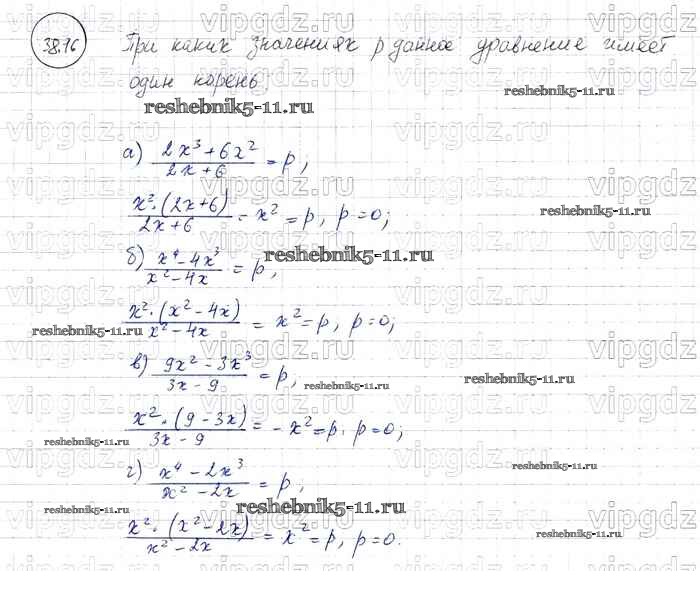 38.16
При каких значениях р данное уравнение имеет
один корень:
reshebnik5-11.ru
reshebnik5-11.ru
а) (2x³ + 6x²)/(2x + 6) = p,
(x² · (2x + 6))/(2x + 6) = x² = p, p = 0;
reshebnik5-11.ru
б) (x⁴ - 4x³)/(x² - 4x) = p,
reshebnik5-11.ru
(x² · (x² - 4x))/(x² - 4x) = x² = p, p = 0;
reshebnik5-11.ru
в) (9x² - 3x³)/(3x - 9) = p,
reshebnik5-11.ru
reshebnik5-11.ru
(x² · (9 - 3x))/(3x - 9) = - x² = p. p = 0;
reshebnik5-11.ru
reshebnik5-11.ru
г) (x⁴ - 2x³)/(x² - 2x) = p,
reshebnik5-11.ru
reshebnik5-11.ru
(x² · (x² - 2x))/(x² - 2x) = x² = p, p = 0.
reshebnik5-11.ru
vipgdz